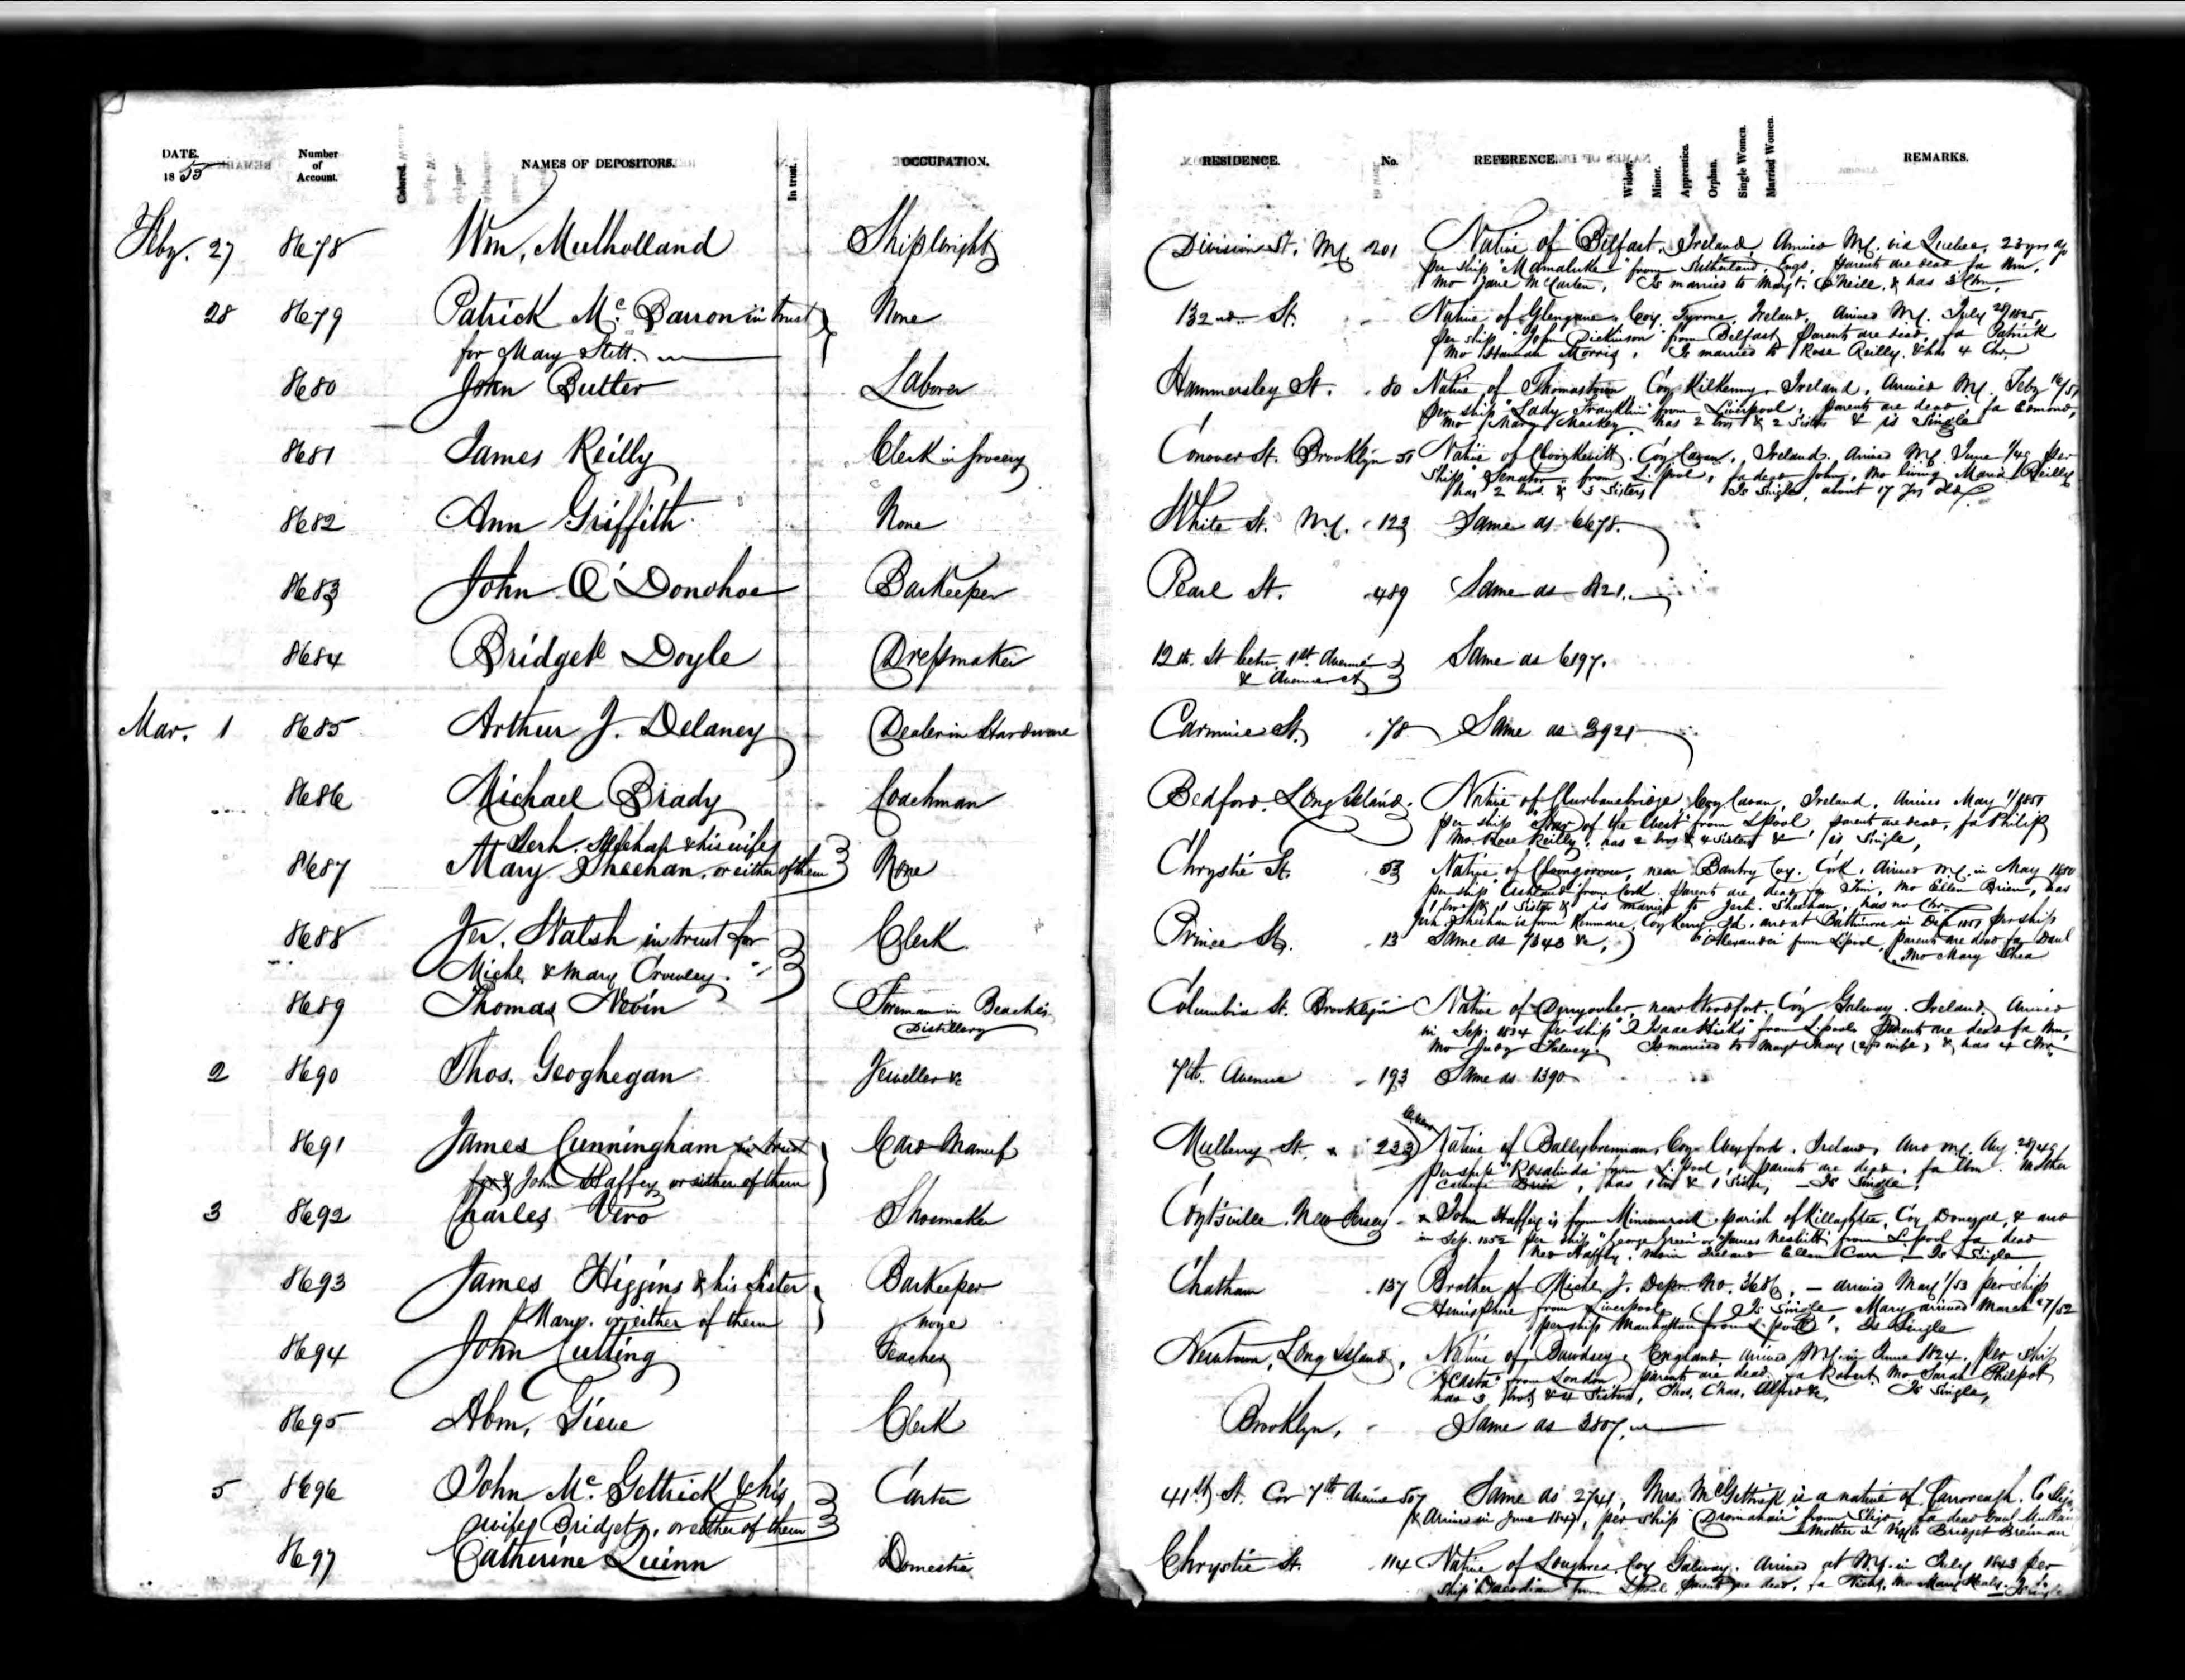 DATE. 1855 Number of Account. Colored. NAMES OF DEPOSITORS. In trust. OCCUPATION. RESIDENCE. No. REFERENCE. Widow. Minor. Apprentice. Orphan. Single Women. Married Women. REMARKS.
Feby. 27 8678 Wm. Mulholland Shipwright Division St. N.Y. 201 Native of Belfast, Ireland, Arrived N.Y. via Quebec, 23 yrs ago
per ship "Mamaluke" from Sutherland, Engd. Parents are dead fa Wm.
Mo Jane McCarten, Is married to Margt. O'Neill, & has 3 Chn.
28 8679 Patrick Mc. Barron in trust None 132nd. St. Native of Coy. Tyrone, Ireland, Arrived N.Y. July 28/1825
for Mary Stitt. per ship "John Dickinson" from Belfast, Parents are dead, fa Patrick
Mo Hannah Morris, Is married to Rose Reilly, & has 4 Chn.
8680 John Butler Laborer Hammersley St. 80 Native of Thomastown Coy Kilkenny, Ireland, Arrived N.Y. Feby 16/51
per ship "Lady Franklin" from Liverpool, parents are dead, fa Edmond,
Mo Mary Mackey has 2 bros & 2 Sisters & is Single
8681 James Reilly Clerk in Grocery Conover St. Brooklyn 51 Native of Coy Cavan, Ireland. Arrived N.Y. June 1/49 per
Ship "Senator" from L.pool, fa dead John, Mo living Maria Reilly
has 2 bros. & 3 Sisters Is Single, about 17 yrs old.
8682 Ann Griffith None White St. N.Y. 123 Same as 6678.
8683 John O'Donohoe Barkeeper Pearl St. 489 Same as 821.
8684 Bridget Doyle Dressmaker 12th. St betw. 1st. Avenue Same as 6197.
& Avenue A
Mar. 1 8685 Arthur J. Delaney Dealer in Hardware Carmine St. 78 Same as 3921
8686 Michael Brady Coachman Bedford, Long Island. Native of Coy. Cavan, Ireland, Arrived May 1/1851
per ship "Star of the West" from Lpool, parents are dead, fa Philip
Mo Rose Reilly, has 2 bros & 4 Sisters & is Single,
Jerh. Sheehan & his wife
8687 Mary Sheehan, or either of them None Chrystie St. 53 Native of near Bantry Coy. Cork, Arrived N.Y. in May 1850
per ship "Ashland" from Cork. Parents are dead, fa Tim, Mo Ellen Brien, has
1 bro & 1 Sister & is married to Jerh. Sheehan, has no Chn.
Jerh. Sheehan is from Kenmare, Coy Kerry, Id. and at Baltimore in 1851 per ship
8688 Jer. Walsh in trust for Clerk Prince St. 13 Same as 7343 &c, "Alexander" from Lpool, parents are dead fa Danl
Michl. & Mary Crowley. Mo Mary Shea
8689 Thomas Nevin Foreman in Beache's Columbia St. Brooklyn Native of near Woodfort, Coy Galway, Ireland, Arrived
Distillery in Sep. 1834 per ship "Isaac Hicks" from L.pool Parents are dead fa Wm,
Mo Judy Is married to Margt May (2nd wife) & has 4 Chn.
2 8690 Thos. Geoghegan Jeweller &c 7th. Avenue 193 Same as 1390.
8691 James Cunningham in trust Card Manuf Mulberry St. 233 Native of Ballybrennan, Coy Wexford, Ireland, Arrd N.Y. Aug. 28/49
for & John Haffey or either of them per ship "Rosalinda" from L.pool, parents are dead, fa Wm. Mother
Brien, has 1 bro & 1 Sister, Is Single.
3 8692 Charles Vero Shoemaker Coytsville, New Jersey John Haffey is from parish of Killaghtee, Coy Donegal, & arrd
in Sep. 1852 per ship "George Green" or "James Nesbitt" from L.pool fa dead
Ned Haffey, mo in Ireland Ellen Carr, Is Single
8693 James Higgins & his Sister Barkeeper Chatham 137 Brother of Michl. J. Depr. No. 3686, arrived May 1/53 per ship
Mary. or either of them none Hemisphere from Liverpool, Is Single Mary arrived March 27/52
per ship Manhattan from L.pool, Is Single
8694 John Cutting Teacher Newtown, Long Island, Native of Bawdsey, England, arrived N.Y. in June 1824, per Ship
"Acasta" from London parents are dead, fa Robert, Mo Sarah Philpot
has 3 bros & 4 Sisters, Thos, Chas, Alfred &c, Is Single,
8695 Abm. Gieue Clerk Brooklyn, Same as 3807.
5 8696 John Mc. Gettrick & his Carter 41st. St. Cor 7th Avenue 507 Same as 2741, Mrs. McGettrick is a native of Carroreagh, Co Sligo
wife Bridget, or either of them & Arrived in June 1847, per ship "Dromahair" from Sligo, fa dead
Mother is Bridget Brennan
8697 Catherine Quinn Domestic Chrystie St. 114 Native of Loughrea, Coy Galway. Arrived at N.Y. in July 1843 per
ship from Lpool, parents are dead, fa Michl, Mo Mary Healy. Is Single